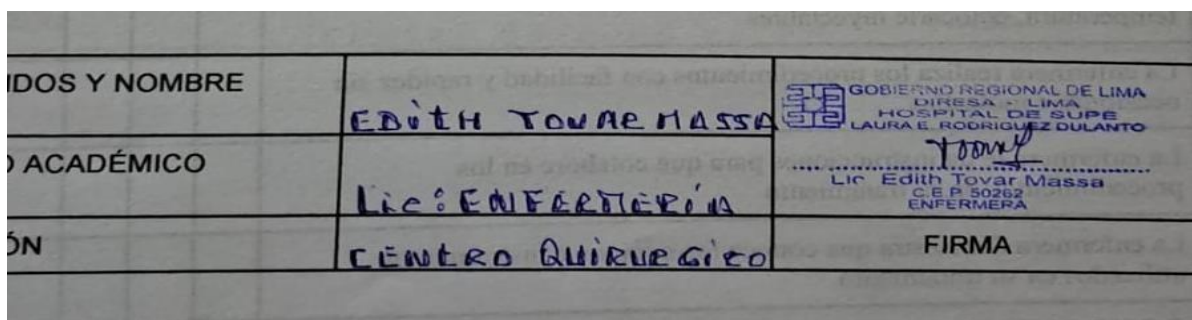 IDOS Y NOMBRE
EDITH TOVAR MASSA
GOBIERNO REGIONAL DE LIMA
DIRESA - LIMA
HOSPITAL DE SUPE
LAURA E. RODRIGUEZ DULANTO
Lic. Edith Tovar Massa
C.E.P. 50262
ENFERMERA
O ACADÉMICO
Lic: ENFERMERÍA
ÓN
CENTRO QUIRURGICO
FIRMA